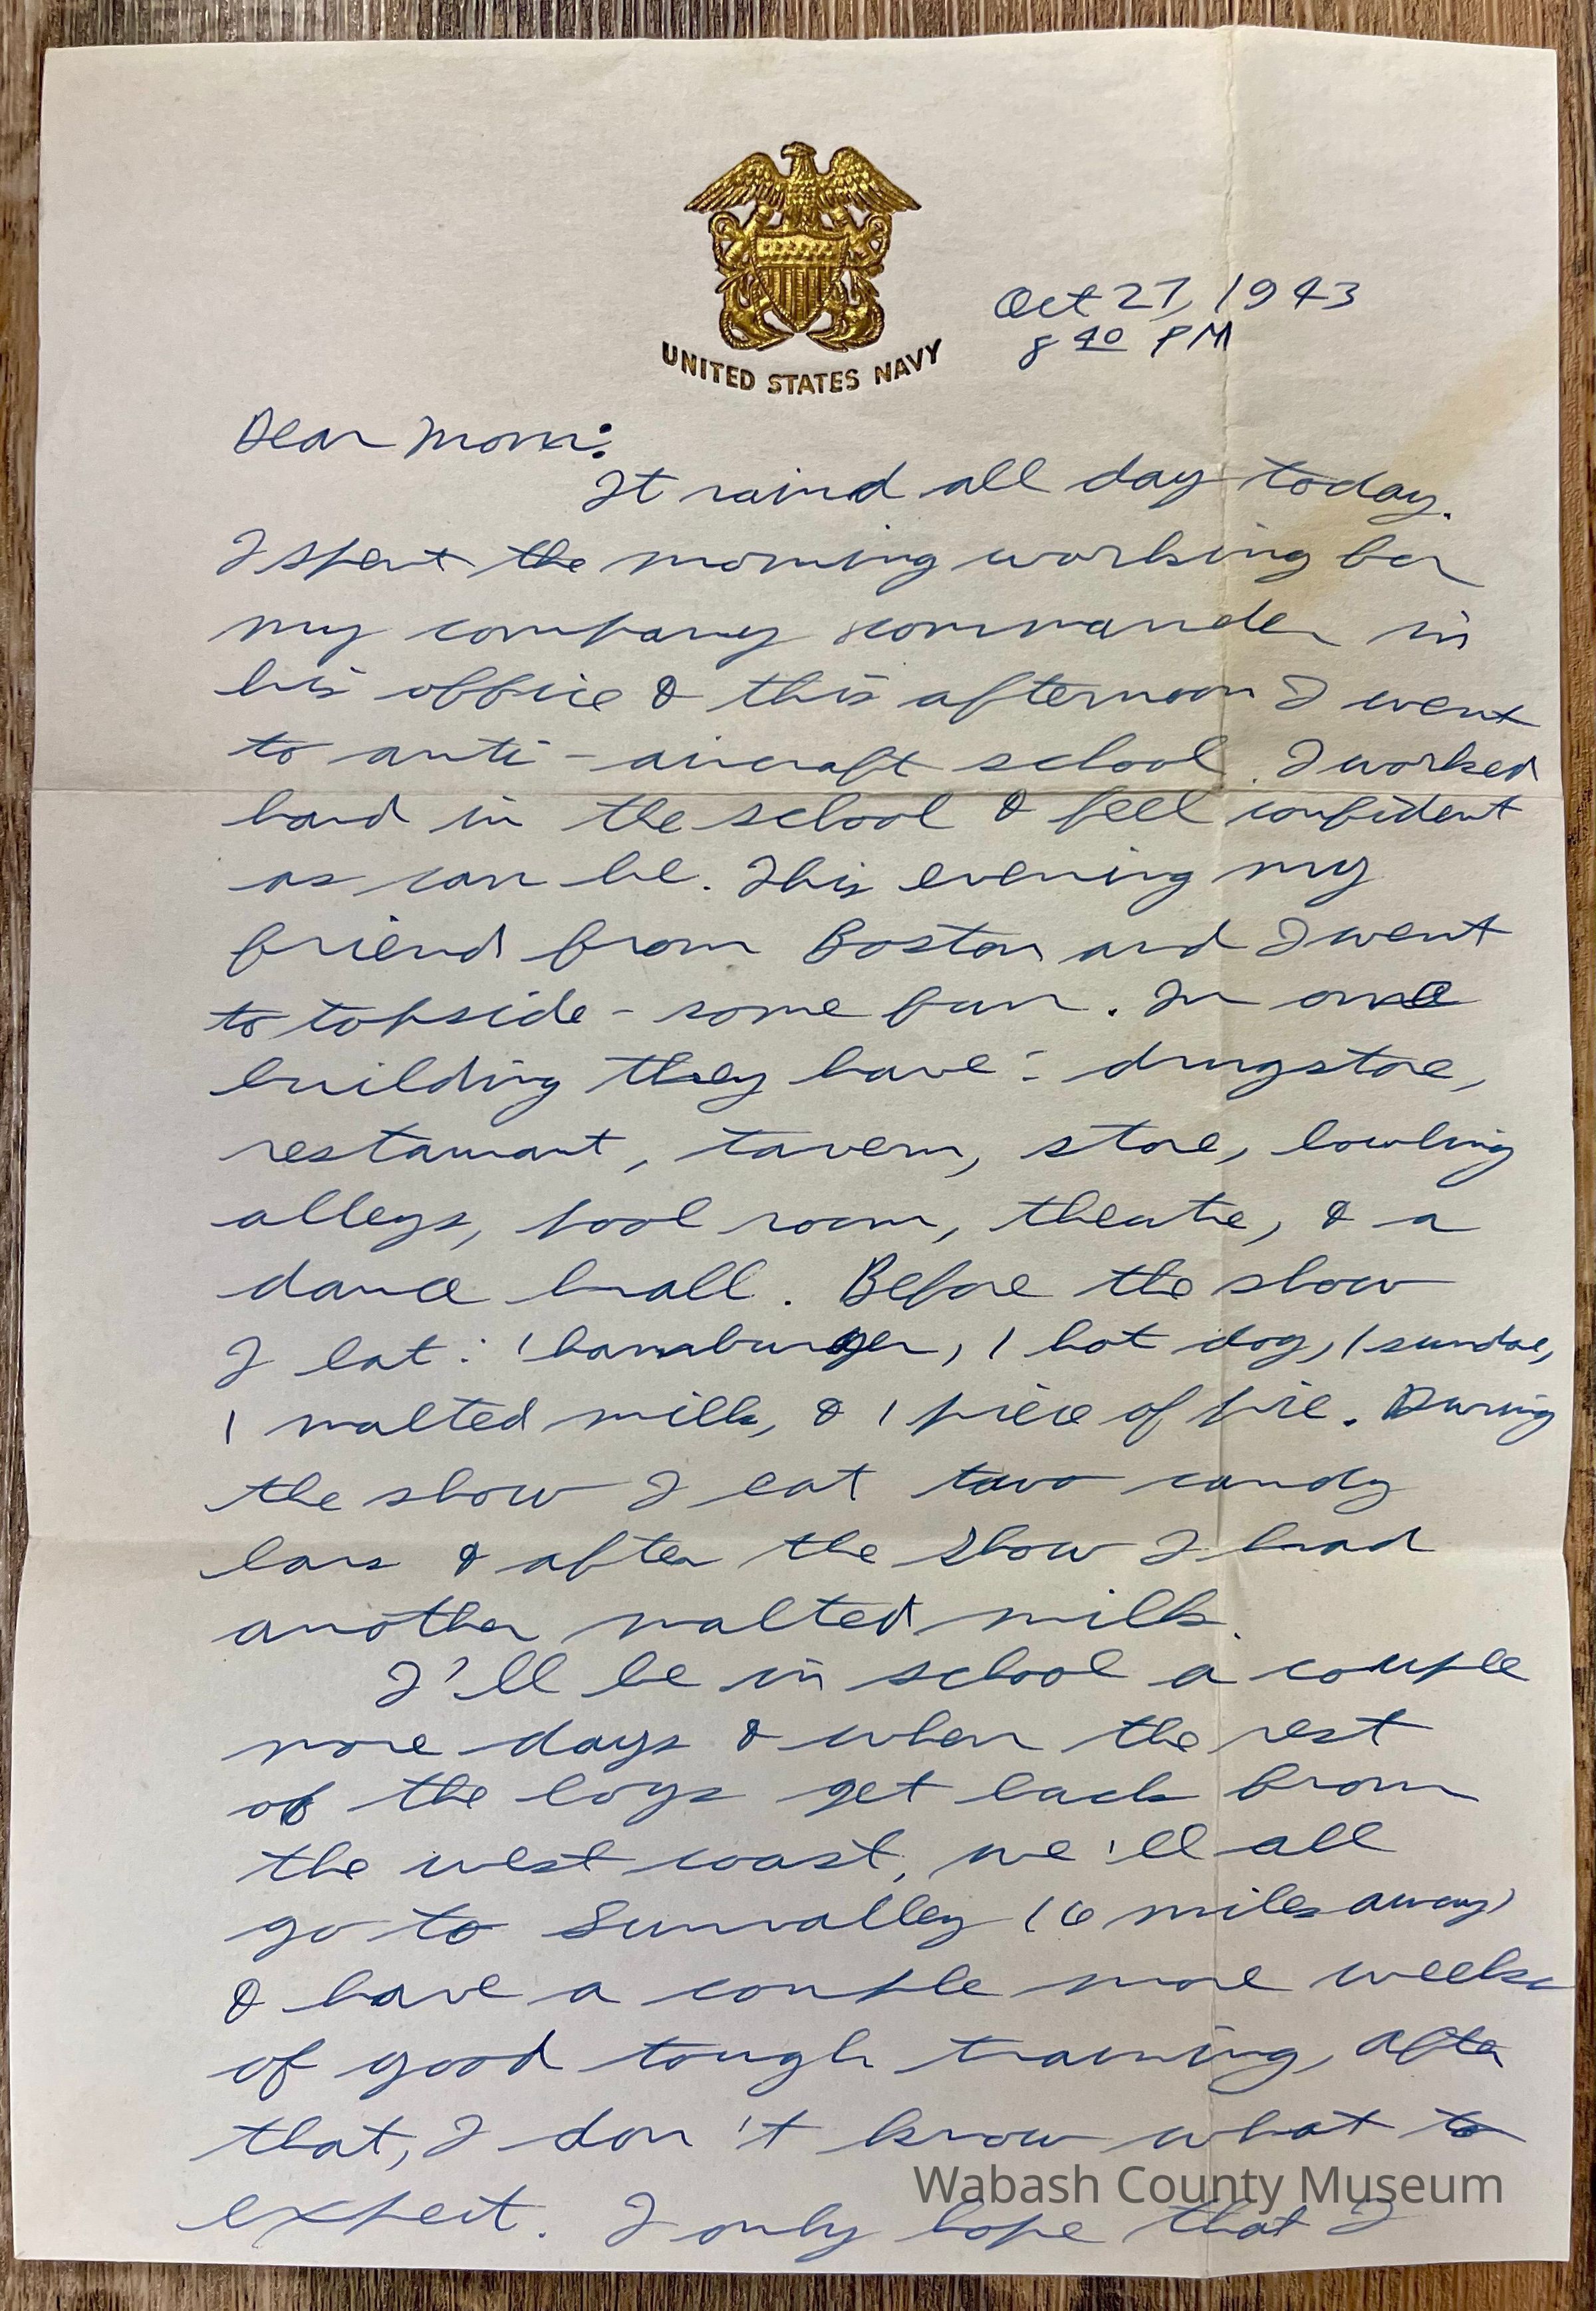 UNITED STATES NAVY
Oct 27, 1943
8 40 PM
Dear Mom:
It raind all day today.
I spent the morning working for
my company commander in
his office & this afternoon I went
to anti-aircraft school. I worked
hard in the school & feel confident
as can be. This evening my
friend from Boston and I went
to topside - some fun. In one
building they have: drugstore,
restaurant, tavern, store, bowling
alleys, pool room, theatre, & a
dance hall. Before the show
I eat: 1 hamburger, 1 hot dog, 1 sundae,
1 malted milk, & 1 piece of pie. During
the show I eat two candy
bars & after the show I had
another malted milk.
I'll be in school a couple
more days & when the rest
of the boys get back from
the west coast, we'll all
go to Sunvalley (6 miles away)
& have a couple more weeks
of good tough training, after
that, I don't know what to
expect. I only hope that I
Wabash County Museum